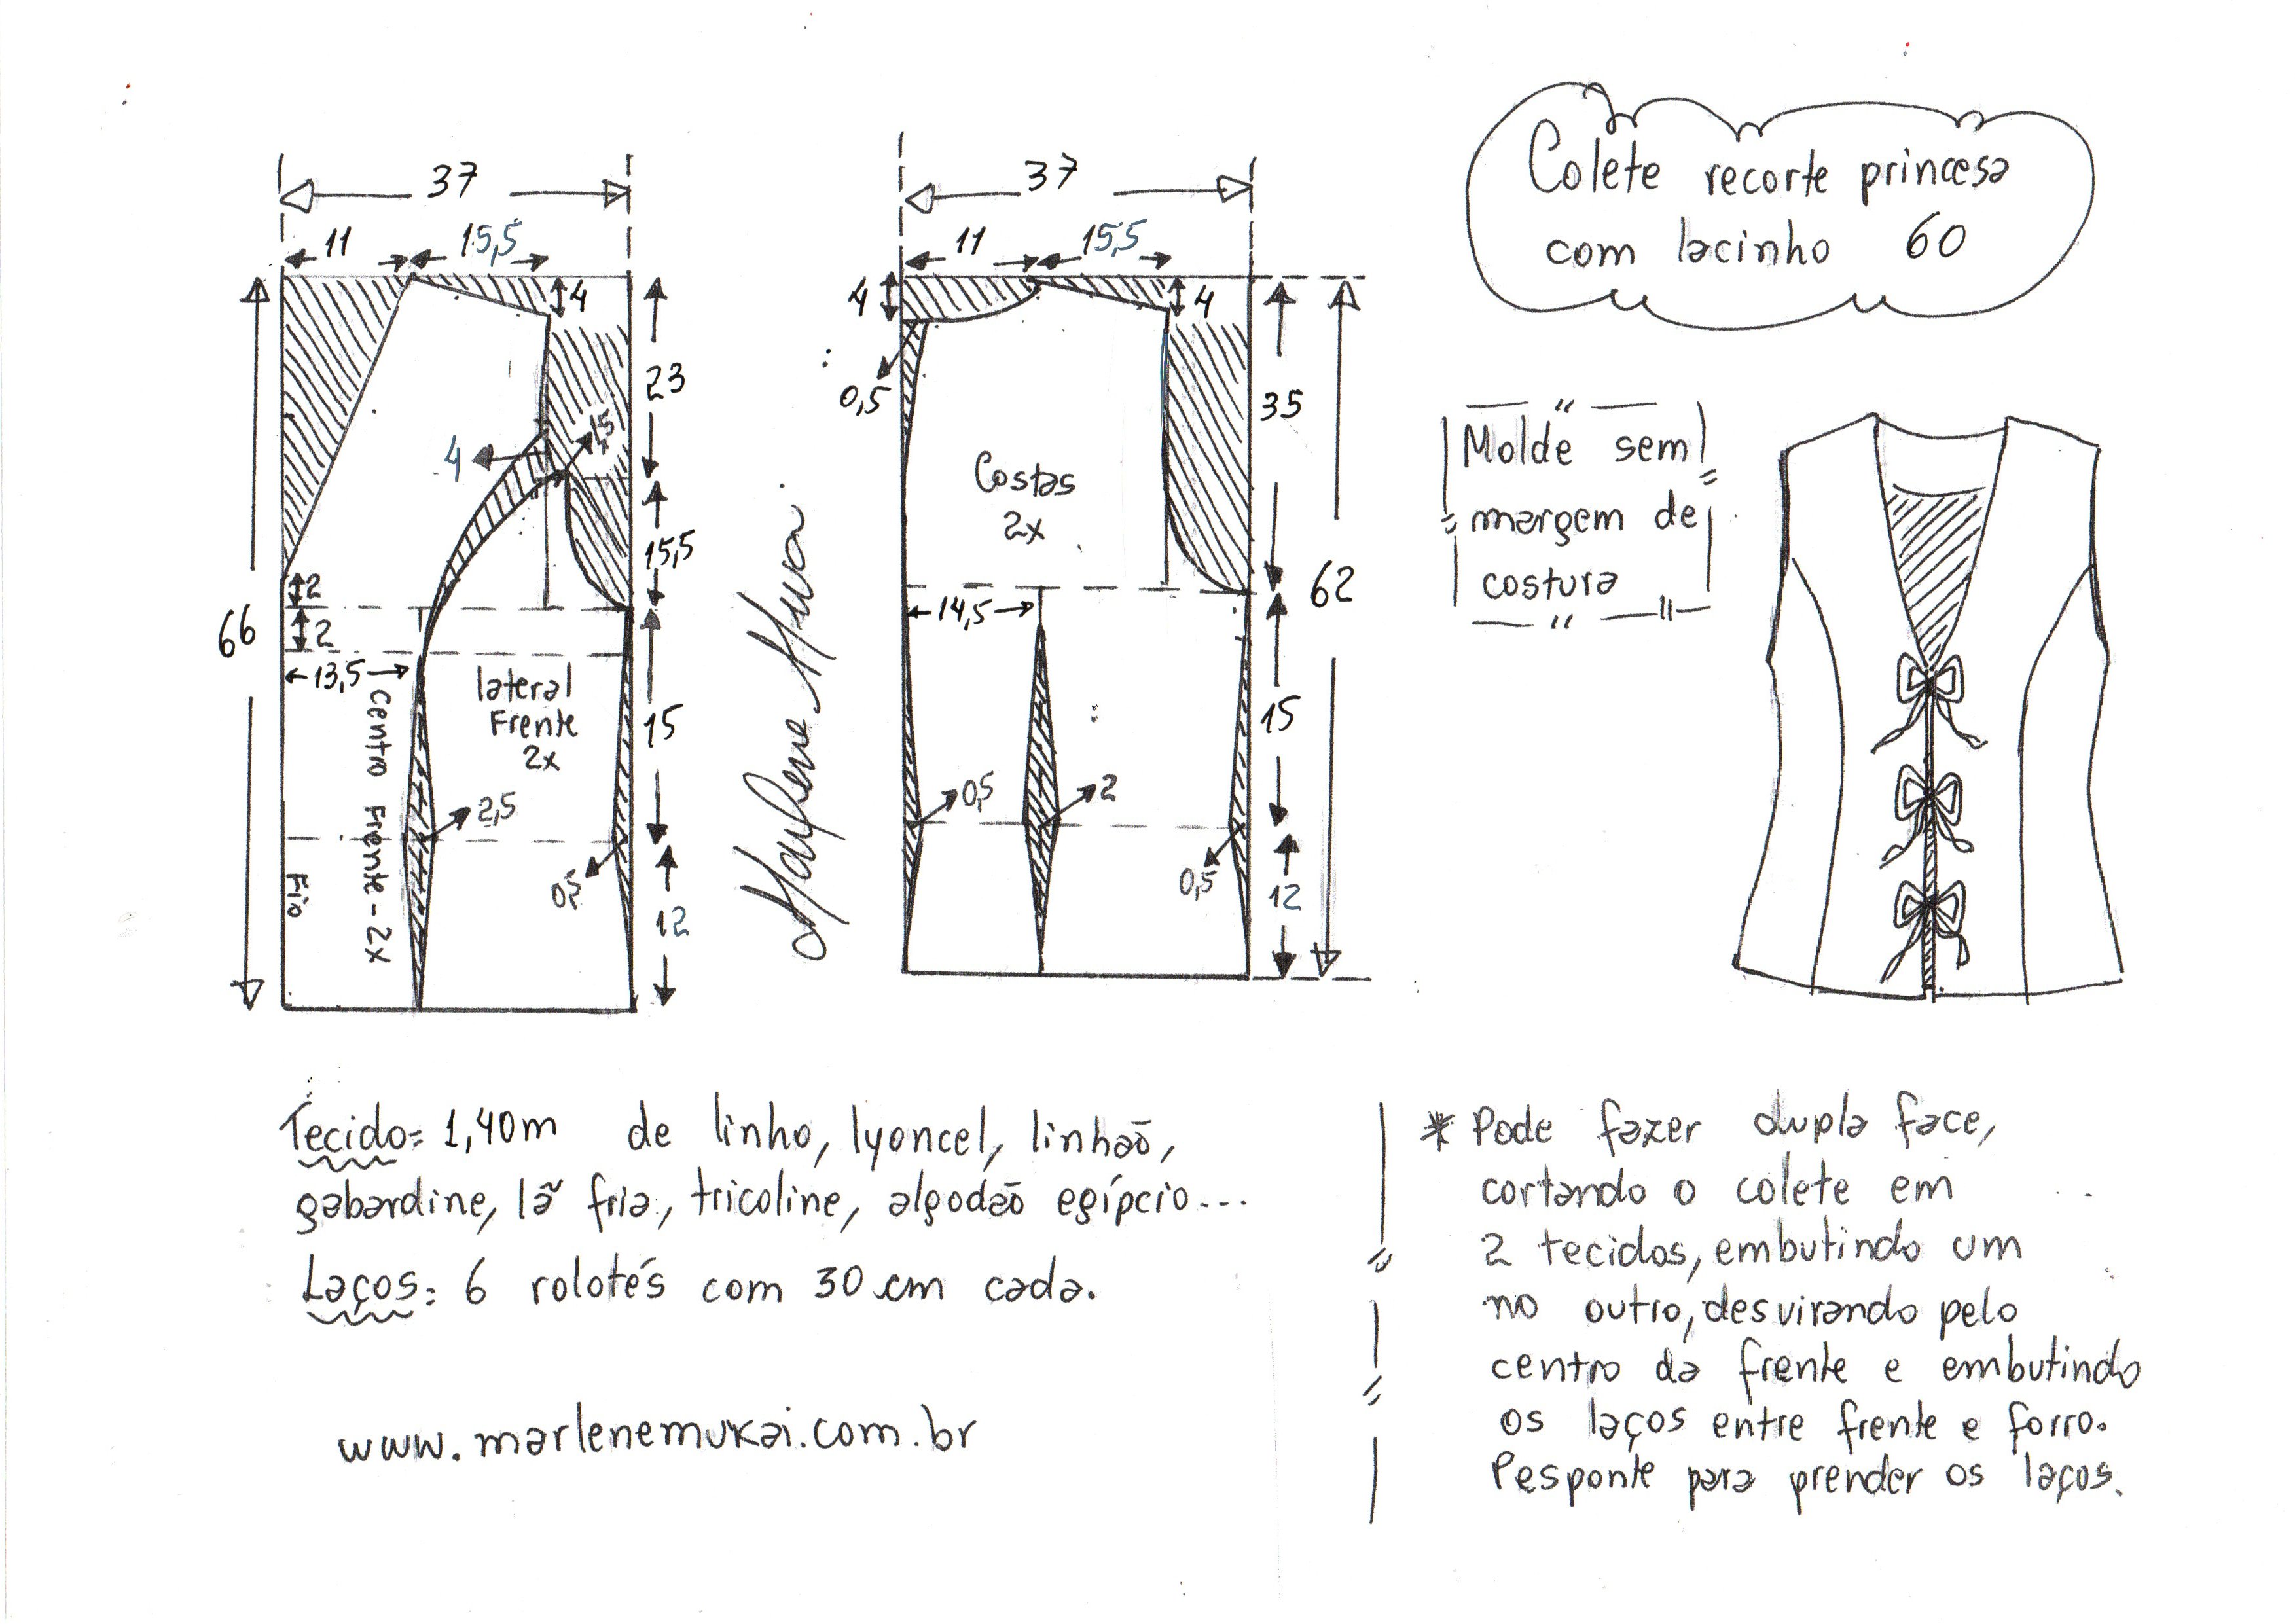 Colete recorte princesa
com lacinho 60
37
11
15,5
4
23
1,5
4
15,5
2
2
66
13,5
Centro Frente - 2x
Fio
lateral
Frente
2x
15
2,5
0,5
12
37
11
15,5
4
4
0,5
35
Costas
2x
62
14,5
15
0,5
2
0,5
12
Molde sem
margem de
costura
Tecido= 1,40m de linho, lyoncel, linhão,
gabardine, lã fria, tricoline, algodão egípcio...
Laços: 6 rolotés com 30 cm cada.
www.marlenemukai.com.br
* Pode fazer dupla face,
cortando o colete em
2 tecidos, embutindo um
no outro, desvirando pelo
centro da frente e embutindo
os laços entre frente e forro.
Pesponte para prender os laços.